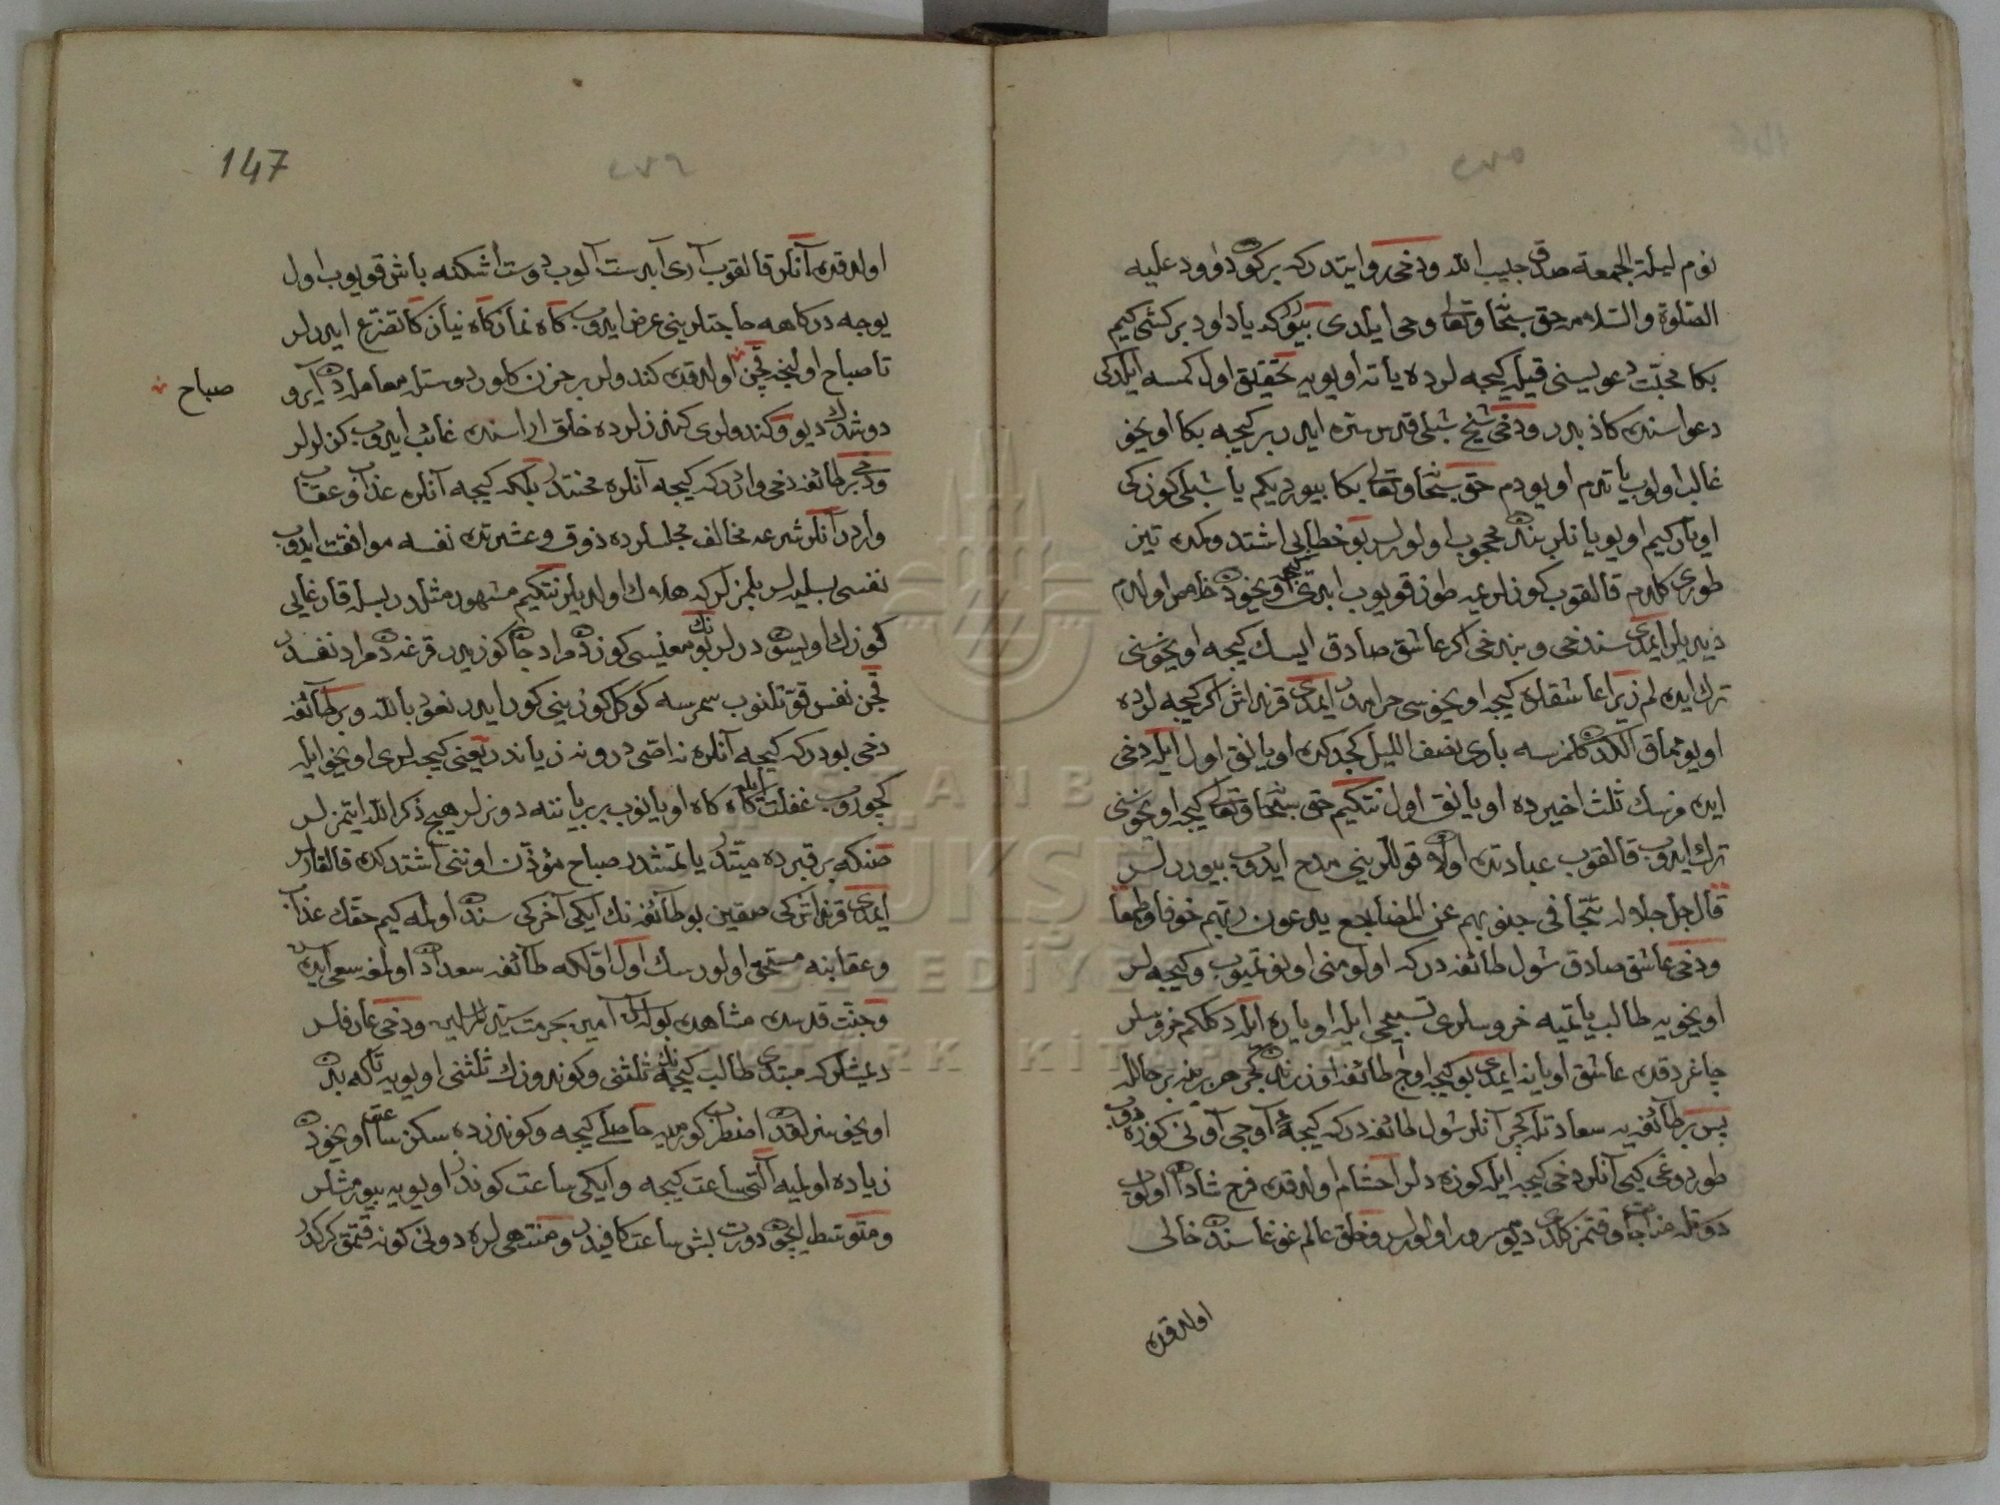 نوم ليلة الجمعة صدق حبيب الله ودخى روايتدر كه بر كون داوود عليه
الصلوة والسلامه حق سبحانه وتعالى وحى ايلدى بيوردى كه يا داود بر كشى كيم
بكا محبت دعويسنى قيله كيجه لرده ياته اويويه تحقيق اول كمسه ايلدكى
دعواسنده كاذبدر ودخى شيخ شبلى قدس سره ايدر بر كيجه بكا اويخو
غالب اولوب ياتدم اويودم حق سبحانه وتعالى بكا بيورديكم يا شبلى كوزكى
اوياركيم اويويانلر بندن محجوب اولورلر بو خطابى اشتدوكمدن تيز
طورى كلدم قالقوب كوزلرمه طوز قويوب ابدى كيجه اويخودن خلاص اولدم
ديديلر ايمدى سندخى وبندخى اكر عاشق صادق ايسك كيجه اويخوسنى
ترك ايده لم زيرا عاشقلره كيجه اويخوسى حرامدر ايمدى قرنداش اكر كيجه لرده
اويومماق الكدن كلمزسه بارى نصف الليل كجدكدن اويانق اول ايله دخى
ايده مزسك ثلث اخيرده اويانق اول نتكيم حق سبحانه وتعالى كيجه اويخوسنى
ترك ايدوب قالقوب عبادتده اولان قوللرينى مدح ايدوب بيوررلر
قال جل جلاله تتجافى جنوبهم عن المضاجع يدعون ربهم خوفا وطمعا
ودخى عاشق صادق شول طائفه در كه اولومنى اونوتميوب وكيجه لر
اويخويه طالب ياتميه خروسلرى تسبيحى ايله اويانه ايله دكلكم خروسلر
چاغردقده عاشق اويانه ايمدى بو كيجه اوچ طائفه اوزرندن كچر هر برينه بر حالله
پس بر طائفه يه سعادتله كچر آنلر شول طائفه در كه كيجه آوجى آونى كوزه دوب
طوردوغى كيبى آنلر دخى كيجه ايله كوزه دلر اخشام اولدقده فرح شادان اولوب
ذوقله مناجات وقتمز كلدى ديو مسرور اولورلر وخلق عالم غوغاسندن خالى
اولدقده
147
اولدقده آنلر قالقوب آرى آبدست آلوب دوست اشكنه باش قويوب اول
يوجه دركاهه حاجتلرينى عرض ايدوب كاه نماز كاه نياز كاه تضرع ايدرلر
تا صباح اولنجه چن اولدقده كندولره بر حزن كلور دوستله معامله دن آيرو
دوشدك ديو وكندولرى كنزلرده خلق اراسنده غائب ايدوب كزلرلر
صباح
ودخى بر طائفه دخى واردر كه كيجه آنلره محنتدر بلكه كيجه آنلره عذاب وعقاب
واردر آنلر شرعه مخالف مجلسلرده ذوق وعشرتده نفسه موافقت ايدوب
نفسى بسليه لر بلمزلر كه هلاك اولديلر نتكيم مشهور مثلدر بسله قارغايى
كوزك اويسون درلر بونك معنيسى كوزدن مراد جان كوزيدر قرغه دن مراد نفسدر
چن نفس قوتلنوب سمرسه كوكل كوزينى كور ايدر نعوذ بالله وبر طائفه
دخى بودر كه كيجه آنلره نه اصى در ونه زياندر يعنى كيجه لرى اويخو ايله
كچوروب غفلت ايله كاه كاه اويانوب بر ياننه دونرلر هيچ ذكر الله ايتمزلر
صنكه بر قبرده ميتدر ياتمشدر صباح مؤذن اوننى اشتدكده قالقارلر
ايمدى قرنداش صقين بو طائفه نك ايكى آخركى سندن اولمه كيم حقك عذاب
وعقابنه مستحق اولورسك اول اولكه طائفه سعداdن اولمغه سعى ايده سن
وجنت قدسده مشاهده بوله سن آمين بحرمت سيد المرسلين ودخى عارفلر
ديمشلر كه مبتدى طالب كيجه نك ثلثنى وكوندوزك ثلثنى اويويه تا كه بدن
اويخوسزلقدن اضطراب كورميه حاصلى كيجه وكوندزده سكز ساعت اويخودن
زياده اولميه آلتى ساعت كيجه وايكى ساعت كوندز اويويه بيورمشلر
ومتوسط ايچون دورت بش ساعت كافيدر ومنتهى لره دونى كونه قتمق كركدر